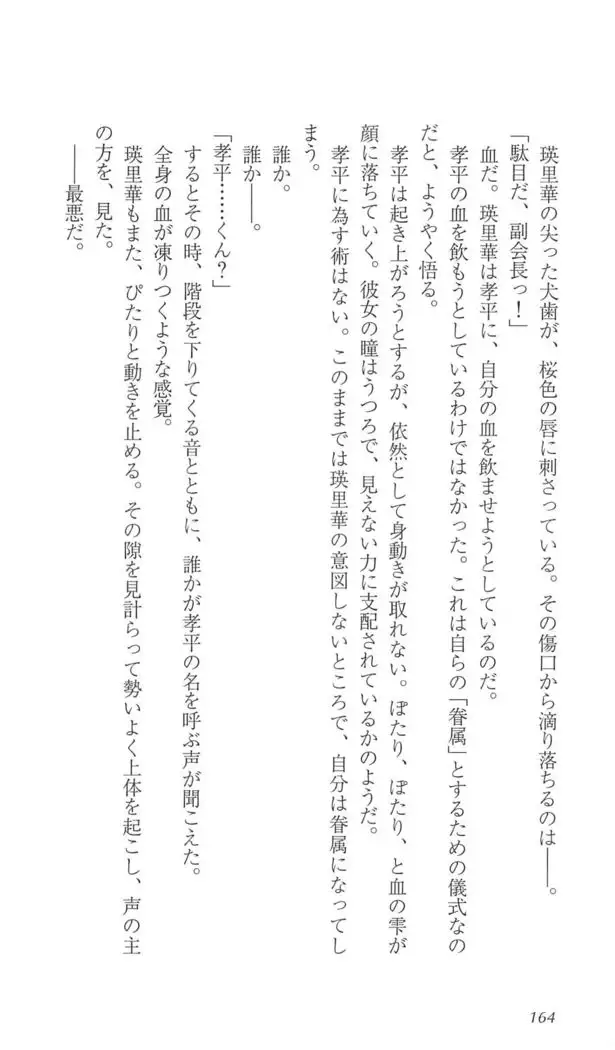 瑛里華の尖った犬歯が、桜色の唇に刺さっている。その傷口から滴り落ちるのは――。
「駄目だ、副会長っ！」
　血だ。瑛里華は孝平に、自分の血を飲ませようとしているのだ。
　孝平の血を飲もうとしているわけではなかった。これは自らの「眷属」とするための儀式なの
だと、ようやく悟る。
　孝平は起き上がろうとするが、依然として身動きが取れない。ぽたり、ぽたり、と血の雫が
顔に落ちていく。彼女の瞳はうつろで、見えない力に支配されているかのようだ。
　孝平に為す術はない。このままでは瑛里華の意図しないところで、自分は眷属になってし
まう。
　誰か。
　誰か――。
「孝平……くん？」
　するとその時、階段を下りてくる音とともに、誰かが孝平の名を呼ぶ声が聞こえた。
　全身の血が凍りつくような感覚。
　瑛里華もまた、ぴたりと動きを止める。その隙を見計らって勢いよく上体を起こし、声の主
の方を、見た。
　――最悪だ。
164